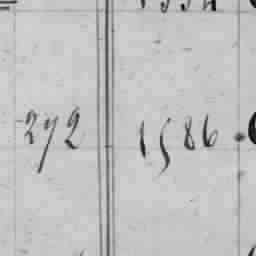 272 1586